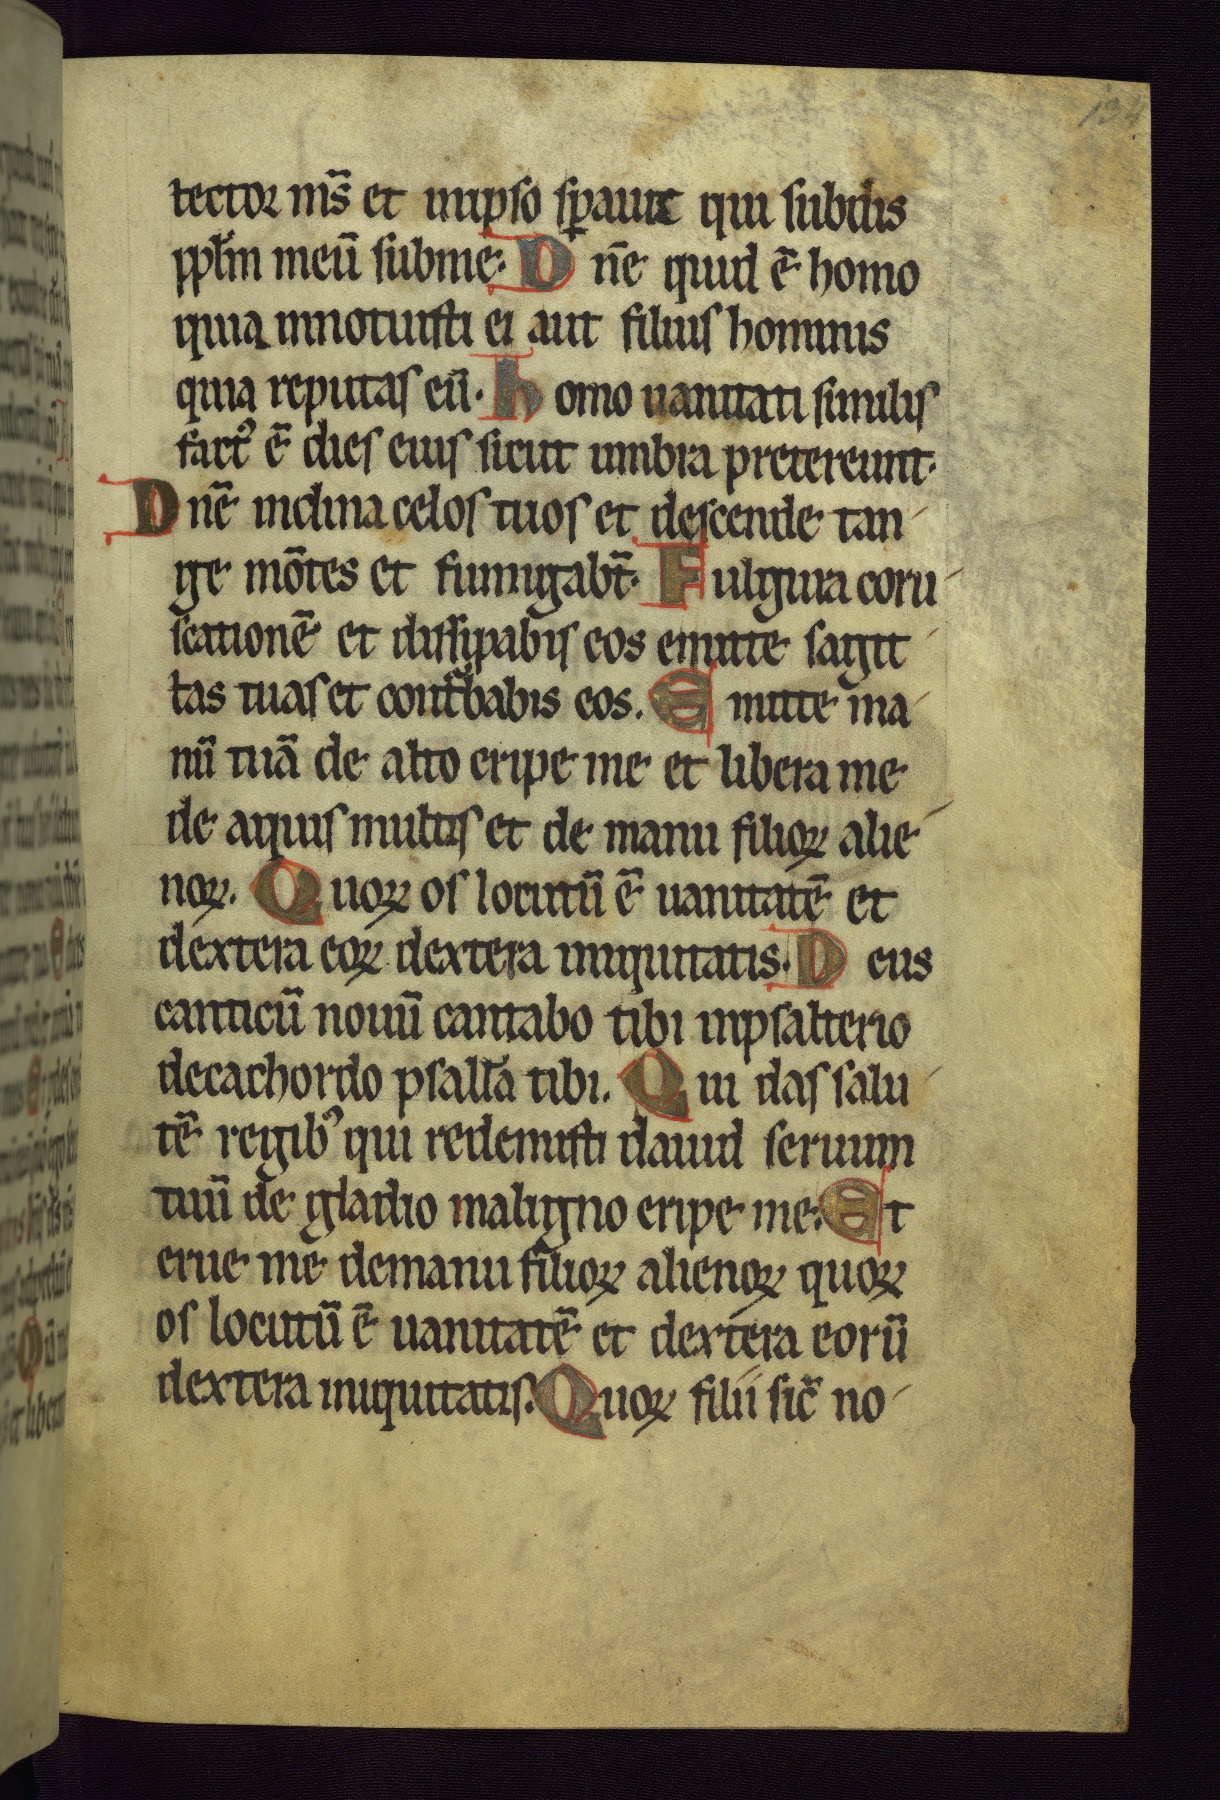 134
tector m̅s et inipso sp̱auit qui subdis
pp̅lm meū subme. Dn̅e quid ē homo
quia innotuisti ei aut filius hominis
quia reputas eū. homo uanitati similis
factꝰ ē dies eius sicut umbra pretereunt.
Dn̅e inclina celos tuos et descende tan
ge mōtes et fumigabt̅. Fulgura coru
scationē et dissipabis eos emitte sagit
tas tuas et cont̾babis eos. Emitte ma
nū tuā de alto eripe me et libera me
de aquis multis et de manu filioꝝ alie
noꝝ. Quoꝝ os locutū ē uanitatē et
dextera eoꝝ dextera iniquitatis. Deus
canticū nouū cantabo tibi inpsalterio
decachordo psallā tibi. Qui das salu
tē regibꝰ qui redemisti dauid seruum
tuū de gladio maligno eripe me. Et
erue me demanu filioꝝ alienoꝝ quoꝝ
os locutū ē uanitatē et dextera eorū
dextera iniquitatis. Quoꝝ filii sic̅ no